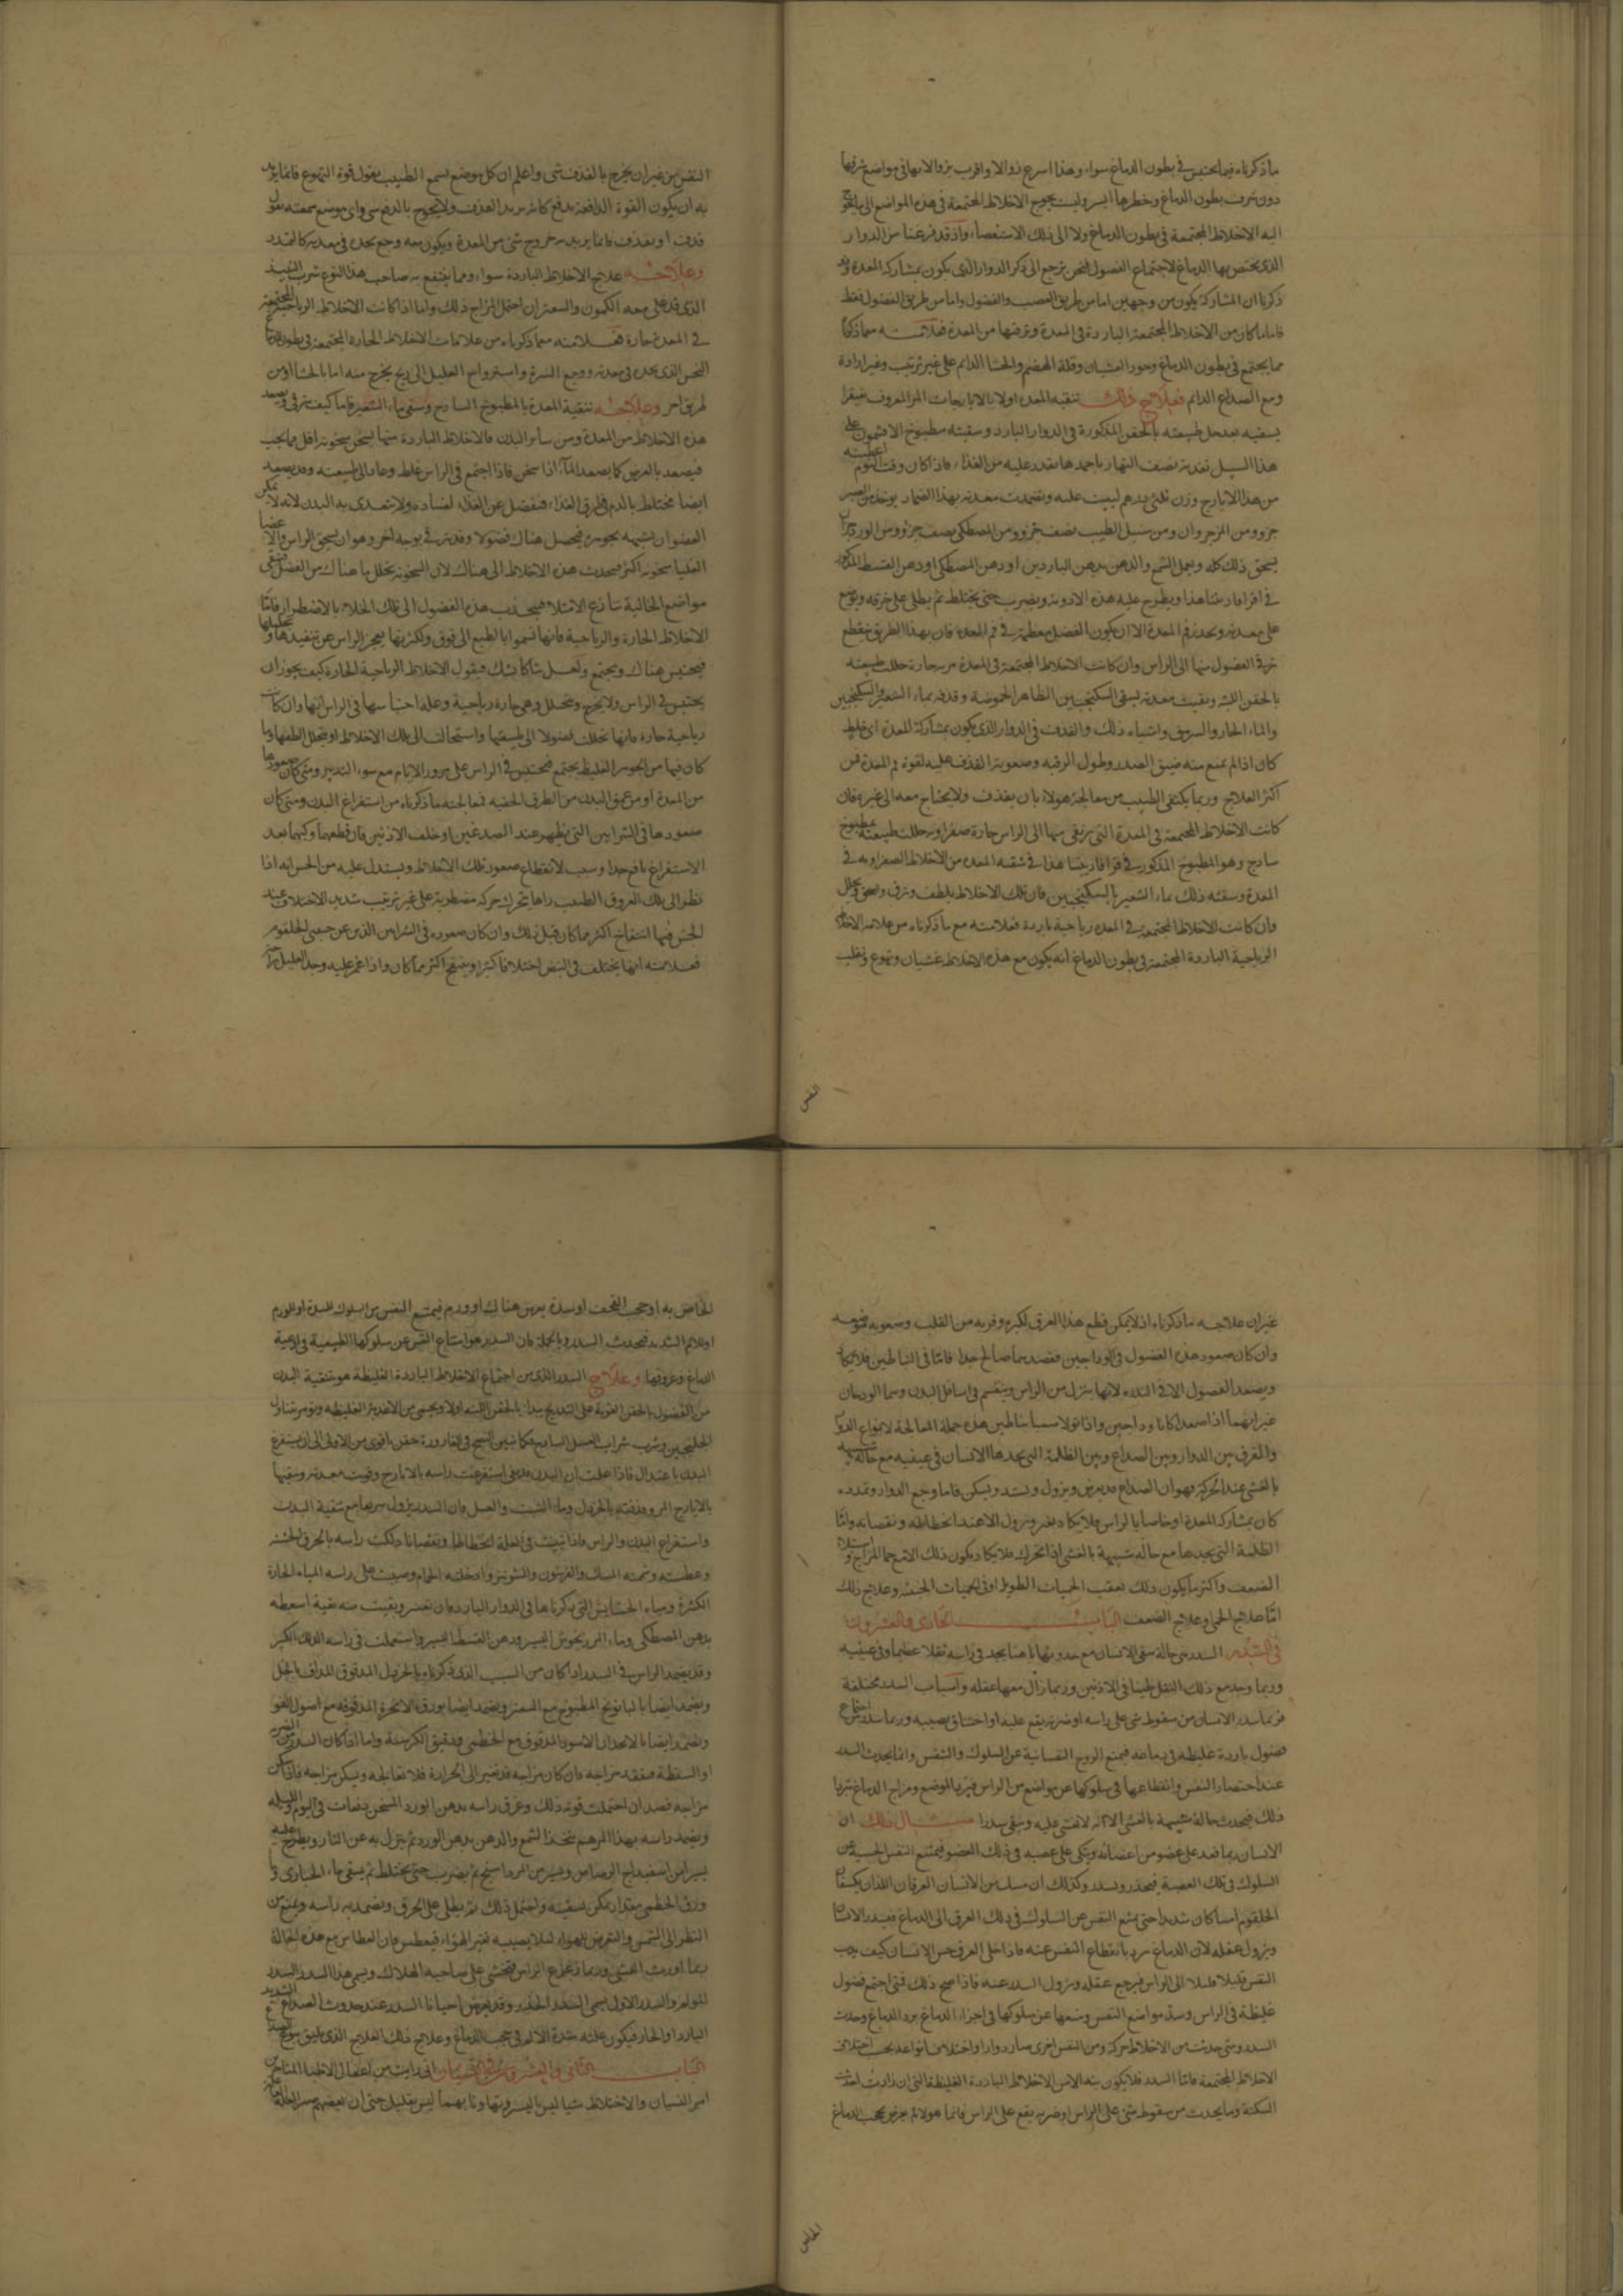 ما ذكرناه فيما يحتبس في بطون الدماغ سواء وهذا اسرع زوالا واقرب برؤا لانها في مواضع شرفها
دون شرف بطون الدماغ وخطرها ايسر وليست يحوج الاخلاط المجتمعة في هذه المواضع الى ما يحوج
اليه الاخلاط المجتمعة في بطون الدماغ ولا الى ذلك الاستقصاء واذ قد فرغنا من الدوار
الذى يختص بها الدماغ لاجتماع الفضول فنحن نرجع الى ذكر الدوار الذى يكون بمشاركة المعدة وقد
ذكرنا ان المشاركة يكون من وجهين اما من طريق العصب والفضول واما من طريق الفضول فقط
فاما ما كان من الاخلاط المجتمعة الباردة في المعدة وترقيها من المعدة فعلامته مما ذكرنا
مما يجتمع في بطون الدماغ وجود الغشيان وقلة الهضم والجشا الدايم على غير ترتيب وغير ارادة
ومع الصداع الدايم فعلاج ذلك تنقية المعدة اولا بالايارجات المر المعروف بفيقرا
يسقيه بعد حل طبيعته بالحقن المذكورة في الدوار البارد وسقيته مطبوخ الافتيمون على
هذا السبيل نصف النهار باحمد ما يقدر عليه من الغذاء فاذا كان وقت النوم اعطيته
من هذا الايارج وزن ثلثى درهم ليبيت عليه وتضمدت معدته بهذا الضماد يوخذ من الصبر
جزو ومن الزعفران ومن سنبل الطيب نصف جزو ومن المصطكى نصف جزو ومن الورد جزا
يسحق ذلك كله ويعمل الشمع والدهن بدهن الباردين او دهن المصطكى او دهن القسط المذكور
في اقرابادينا هذا ويطرح عليه هذه الادوية ويضرب حتى يختلط ثم يطلى على خرقه ويوضع
على معدته ويحذر فم المعدة الا ان يكون الفضل معظمه في فم المعدة فان بهذا الطريق ينقطع
ترقى الفضول منها الى الراس وان كانت الاخلاط المجتمعة في المعدة مرية حارة حللت طبيعته
بالحقن اللينة ونقيت معدته بسقى السكنجبين الظاهر الحموضة وقذفه بماء الشعير والسكنجبين
والماء الحار والسرمق واشباه ذلك والقذف في الدوار الذى يكون بمشاركة المعدة اى خلط
كان اذا لم يمنع منه ضيق الصدر وطول الرقبة وصعوبة القذف عليه لقوة فم المعدة فمن
اكثر العلاج وربما يكتفى الطبيب من معالجة هولاء بان يقذف ولا يحتاج معه الى غيره فان
كانت الاخلاط المجتمعة في المعدة التى يرتقى منها الى الراس حارة صفراوية حللت طبيعته بمطبوخ
ساذج وهو المطبوخ المذكور في قرابادينا هذا في تنقية المعدة من الاخلاط الصفراوية في
المعدة وسقيته ذلك بماء الشعير بالسكنجبين فان تلك الاخلاط يلطف وترق
وان كانت الاخلاط المجتمعة في المعدة رياحية باردة فعلامته مع ما ذكرناه من علامة الاخلاط
الرياحية الباردة المجتمعة في بطون الدماغ انه يكون مع هذه الاخلاط غشيان وتهوع وتقلب
النفس
النفس من غير ان يخرج بالقذف شى واعلم ان كل موضع يسمع الطبيب يقول قوة التهوع فانما يريد
به ان يكون القوة الدافعة تدفع القذف ولا يخرج بالدفع شى واى موضع سمعته يقول
قذف او تقذف فانما يريد به خروج شى من المعدة ويكون معه وجع يحده في معدته كالتمدد
وعلاجه علاج الاخلاط الباردة سواء ومما ينتفع به صاحب هذا النوع شرب النبيذ
الذى قد غلى معه الكمون والسعتر ان احتمل المزاج ذلك واما اذا كانت الاخلاط الرياحية المجتمعة
في المعدة حارة فعلامته مما ذكرناه من علامات الاخلاط الحارة المجتمعة في بطون الدماغ
النخس الذى يجده في معدته ووجع السرة واسترواح العليل الى ريح يخرج منه اما بالجشا او من
طريق اخر وعلاجه تنقية المعدة بالمطبوخ الساذج وسقى ماء الشعير فاما كيف ترقى ويصعد
هذه الاخلاط من المعدة ومن سائر البدن فالاخلاط الباردة منها يسخن سخونة اقل مما يجب
فيصعد بالعرض كما يصعد الماء اذا سخن فاذا اجتمع في الراس غلظ وعاد الى طبيعته وقد يصعد
ايضا مختلط بالدم في طرق الغذاء فيفضل عن الغذاء لفساده ولا يتغذى به البدن لانه لا يمكن
العضو ان يشبهه بجوهره فيحصل هناك فضولا وقد يرقى بوجه اخر وهو ان يسخن الراس والاعضا
العليا سخونة اكثر فيجذب هذه الاخلاط الى هناك لان السخونة يحلل ما هناك من الفضل فتبقى
مواضع الخالية تنازع الامتلاء فيجذب هذه الفضول الى تلك الخلاء بالاضطرار فاما
الاخلاط الحارة والرياحية فانها تسموا بالطبع الى فوق ولكثرتها يعجز الراس عن تنفيذها وتحليلها
فيحتبس هناك ويجتمع ولعل شاكا يشك فيقول الاخلاط الرياحية الحارة كيف يجوز ان
يحتبس في الراس ولا يخرج ويتحلل وهى حارة رياحية وعلة احتباسها في الراس انها وان كانت
رياحية حارة فانها تحللت فضولا الى طبيعتها واستحالت الى تلك الاخلاط او يتحلل الطفها وما
كان فيها من الجوهر الغليظ يجتمع فيحتبس في الراس على مرور الايام مع سوء التدبير ومتى كان صعودها
من المعدة او من عمق البدن من الطرق الخفية فمعالجته ما ذكرناه من استفراغ البدن ومتى كان
صعودها في الشرايين التى يظهر عند الصدغين وخلف الاذنين فان قطعها وكيها بعد
الاستفراغ نافع جدا وسبب لانقطاع صعود تلك الاخلاط ويستدل عليه من الحس انه اذا
نظر الى تلك العروق الطبيب راها يتحرك حركة مضطربة على غير ترتيب شديد الاختلاف عند
الجس فيها انتفاخ اكثر مما كان قبل ذلك وان كان صعوده في الشرايين الذين عن جنبى الحلقوم
فعلامته انها يختلف في النبض اختلافا كثيرا وينتفخ اكثر مما كان واذا غمز عليه وجد العليل
غير ان علاجه ما ذكرناه اذ لا يمكن قطع هذا العرق لكبره وقربه من القلب وصعوبة
وان كان صعود هذه الفضول في الوداجين ففصدهما صالح جدا فاما في الشاطين فلا يكاد
ويصعد الفضول الا في الندرة لانها ينزل من الراس وينقسم في اسافل البدن وهما الودجان
غير انهما اذا صعدا كانا وداجين واذا نزلا سميا شاطين هذه جملة المعالجة لانواع الدوار
والفرق بين الدوار وبين الصداع وبين الظلمة التى يجدها الانسان في عينيه مع حالة شبيهة
بالغشى عند الحركة فهو ان الصداع قد يعرض ويزول ويشتد ويسكن فاما وجع الدوار وتمدده
كان بمشاركة المعدة او خاصا بالراس فلا يكاد يفتر ويزول الا عند انحطاطه ونقصانه واما
الظلمة التى يجدها مع حالة شبيهة بالغشى اذا تحرك فلا يكاد يكون ذلك الا مع حما المزاج و
الضعف واكثر ما يكون ذلك بعقب الحميات الطويلة او في الحميات الخبيثة وعلاج ذلك
اما علاج الحمى وعلاج الضعف الباب الحادى والعشرون
في السدر السدر هى حالة يبقى الانسان مع حدوثها باهتا يجد في راسه ثقلا عظيما وفي عينيه
وربما وجد مع ذلك الثقل طنينا في الاذنين وربما زال معها عقله واسباب السدر مختلفة
فربما سدر الانسان من سقوط شى على راسه او ضربة يقع عليه او اختناق يصيبه وربما سدر من اجتماع
فضول باردة غليظة في دماغه فيمنع الروح النفسانية عن السلوك والتنفس وانما يحدث السدر
عند احتصار النفس وانقطاعها في سلوكها عن مواضع من الراس فيبرد الموضع ومزاج الدماغ بتربة
ذلك فيحدث حالة شبيهة بالغشى الا انه لا يغشى عليه ويبقى سدرا مثال ذلك ان
الانسان ربما قعد على عضو من اعضائه ويتكى على عصبه في ذلك العضو فيمتنع النفس الحسية عن
السلوك في تلك العصبة فيخدر ويسدر وكذلك ان مسك من الانسان العرقان اللذان يكتنفان
الحلقوم امساكا شديدا حتى يمنع النفس عن السلوك في ذلك العرق الى الدماغ فيسدر الانسان
ويزول عقله لان الدماغ يبرد بانقطاع النفس عنه فاذا خلى العرق حس الانسان كيف يدب
النفس قليلا قليلا الى الراس فيرجع عقله ويزول السدر عنه فاذا صح ذلك فمتى اجتمع فضول
غليظة في الراس وسد مواضع النفس ومنعها عن سلوكها في اجزاء الدماغ برد الدماغ وحدث
السدر ومتى حدثت من الاخلاط حركة ومن النفس اخرى صار دوارا واختلاف انواعه بحسب اختلاف
الاخلاط المجتمعة فاما السدر فلا يكون بتة الا من الاخلاط الباردة الغليظة التى ان زادت احدثت
السكتة وما يحدث من سقوط شى على الراس او ضربة يقع على الراس فانما هو لالم يعرض بحجب الدماغ
الخاص
الخاص به او حجب القحف او سدة يعرض هناك او ورم فيمنع النفس من السلوك للسدة او للورم
او للالم الشديد فيحدث السدر وبالجملة فان السدر هو امتناع النفس عن سلوكها الطبيعية في اوعية
الدماغ وعروقها وعلاج السدر الذى من اجتماع الاخلاط الباردة الغليظة هو تنقية البدن
من الفضول بالحقن القوية على التدريج يبدا بالحقن اللينة اولا ويحمى من الاغذية الغليظة ويؤمر بتناول
الجلنجبين وشرب شراب العسل الساذج فكما تبين النضج في القارورة حقن باقوى من الاولى الى ان يستفرغ
البدن باعتدال فاذا علمت ان البدن قد نقى استفرغت راسه بالايارج وقويت معدته ونقيتها
بالايارج المر وقذفته بالخردل وماء الشبت والعسل فان السدر يزول سريعا مع تنقية البدن
واستفراغ البدن والراس فاذا تبينت في العلة انحطاطا ونقصانا دلكت راسه بالخرق الخشنة
وعطسته وشممته المسك والفربيون والشونيز وادخلته الحمام وصببت على راسه المياه الحارة
الكثيرة ومياه الحشايش التى ذكرناها في الدوار البارد فان نقص وبقيت منه بقية اسعطه
بدهن المصطكى وماء المرزنجوش اليسير ودهن القسط اليسير واستعملت في راسه الدلك الكثير
وقد يضمد الراس في السدر اذا كان من السبب الذى ذكرناه بالخردل المدقوق المداف بالخل
ويضمد ايضا بالبابونج المطبوخ مع السعتر ويضمد ايضا بورق الانجرة المدقوقة مع اصول الفو
ويضمد ايضا بالانجدان الاسود المدقوق مع الخطمى ودقيق الكرسنة واما اذا كان السدر من الضربة
او السقطة فيفقد مزاجه فان كان مزاجه قد تغير الى الحرارة فلا تعالجه ويسكن مزاجه فاذا سكن
مزاجه فصد ان احتملت قوته ذلك وعرق راسه بدهن الورد المسخن دفعات في اليوم والليلة
ويضمد راسه بهذا المرهم يتخذ الشمع والدهن بدهن الورد ثم ينزل به عن النار ويطرح عليه
يسير من اسفيداج الرصاص ويسير من المرداسنج ثم يضرب حتى يختلط ثم يسقى ماء الخبازى و
ورق الخطمى بمقدار يمكن تسقيته واحتمل ذلك ثم يطلى على الخرق ويضمد به راسه ويمنع من
النظر الى الشمس والتعرض للهواء لئلا يصيبه تغير الهواء فيعطس فان العطاس مع هذه الحالة
ربما اورث الغشى وربما زعزع الراس فيخشى على صاحبه الهلاك ويسمى هذا السدر السدر
المولم والسدر الاول يسمى السدر الخدر وقد يعرض احيانا السدر عند حدوث الصداع الشديد
البارد او الحار فيكون علته شدة الالم في حجب الدماغ وعلاج ذلك العلاج الذى يليق بنوع الصداع
الباب الثانى والعشرون في النسيان انى رايت من اغفال الاطباء المتاخرين
امر النسيان والاختلاط شيا ليس باليسير وتهاونا بهما ليس بقليل حتى ان بعضهم